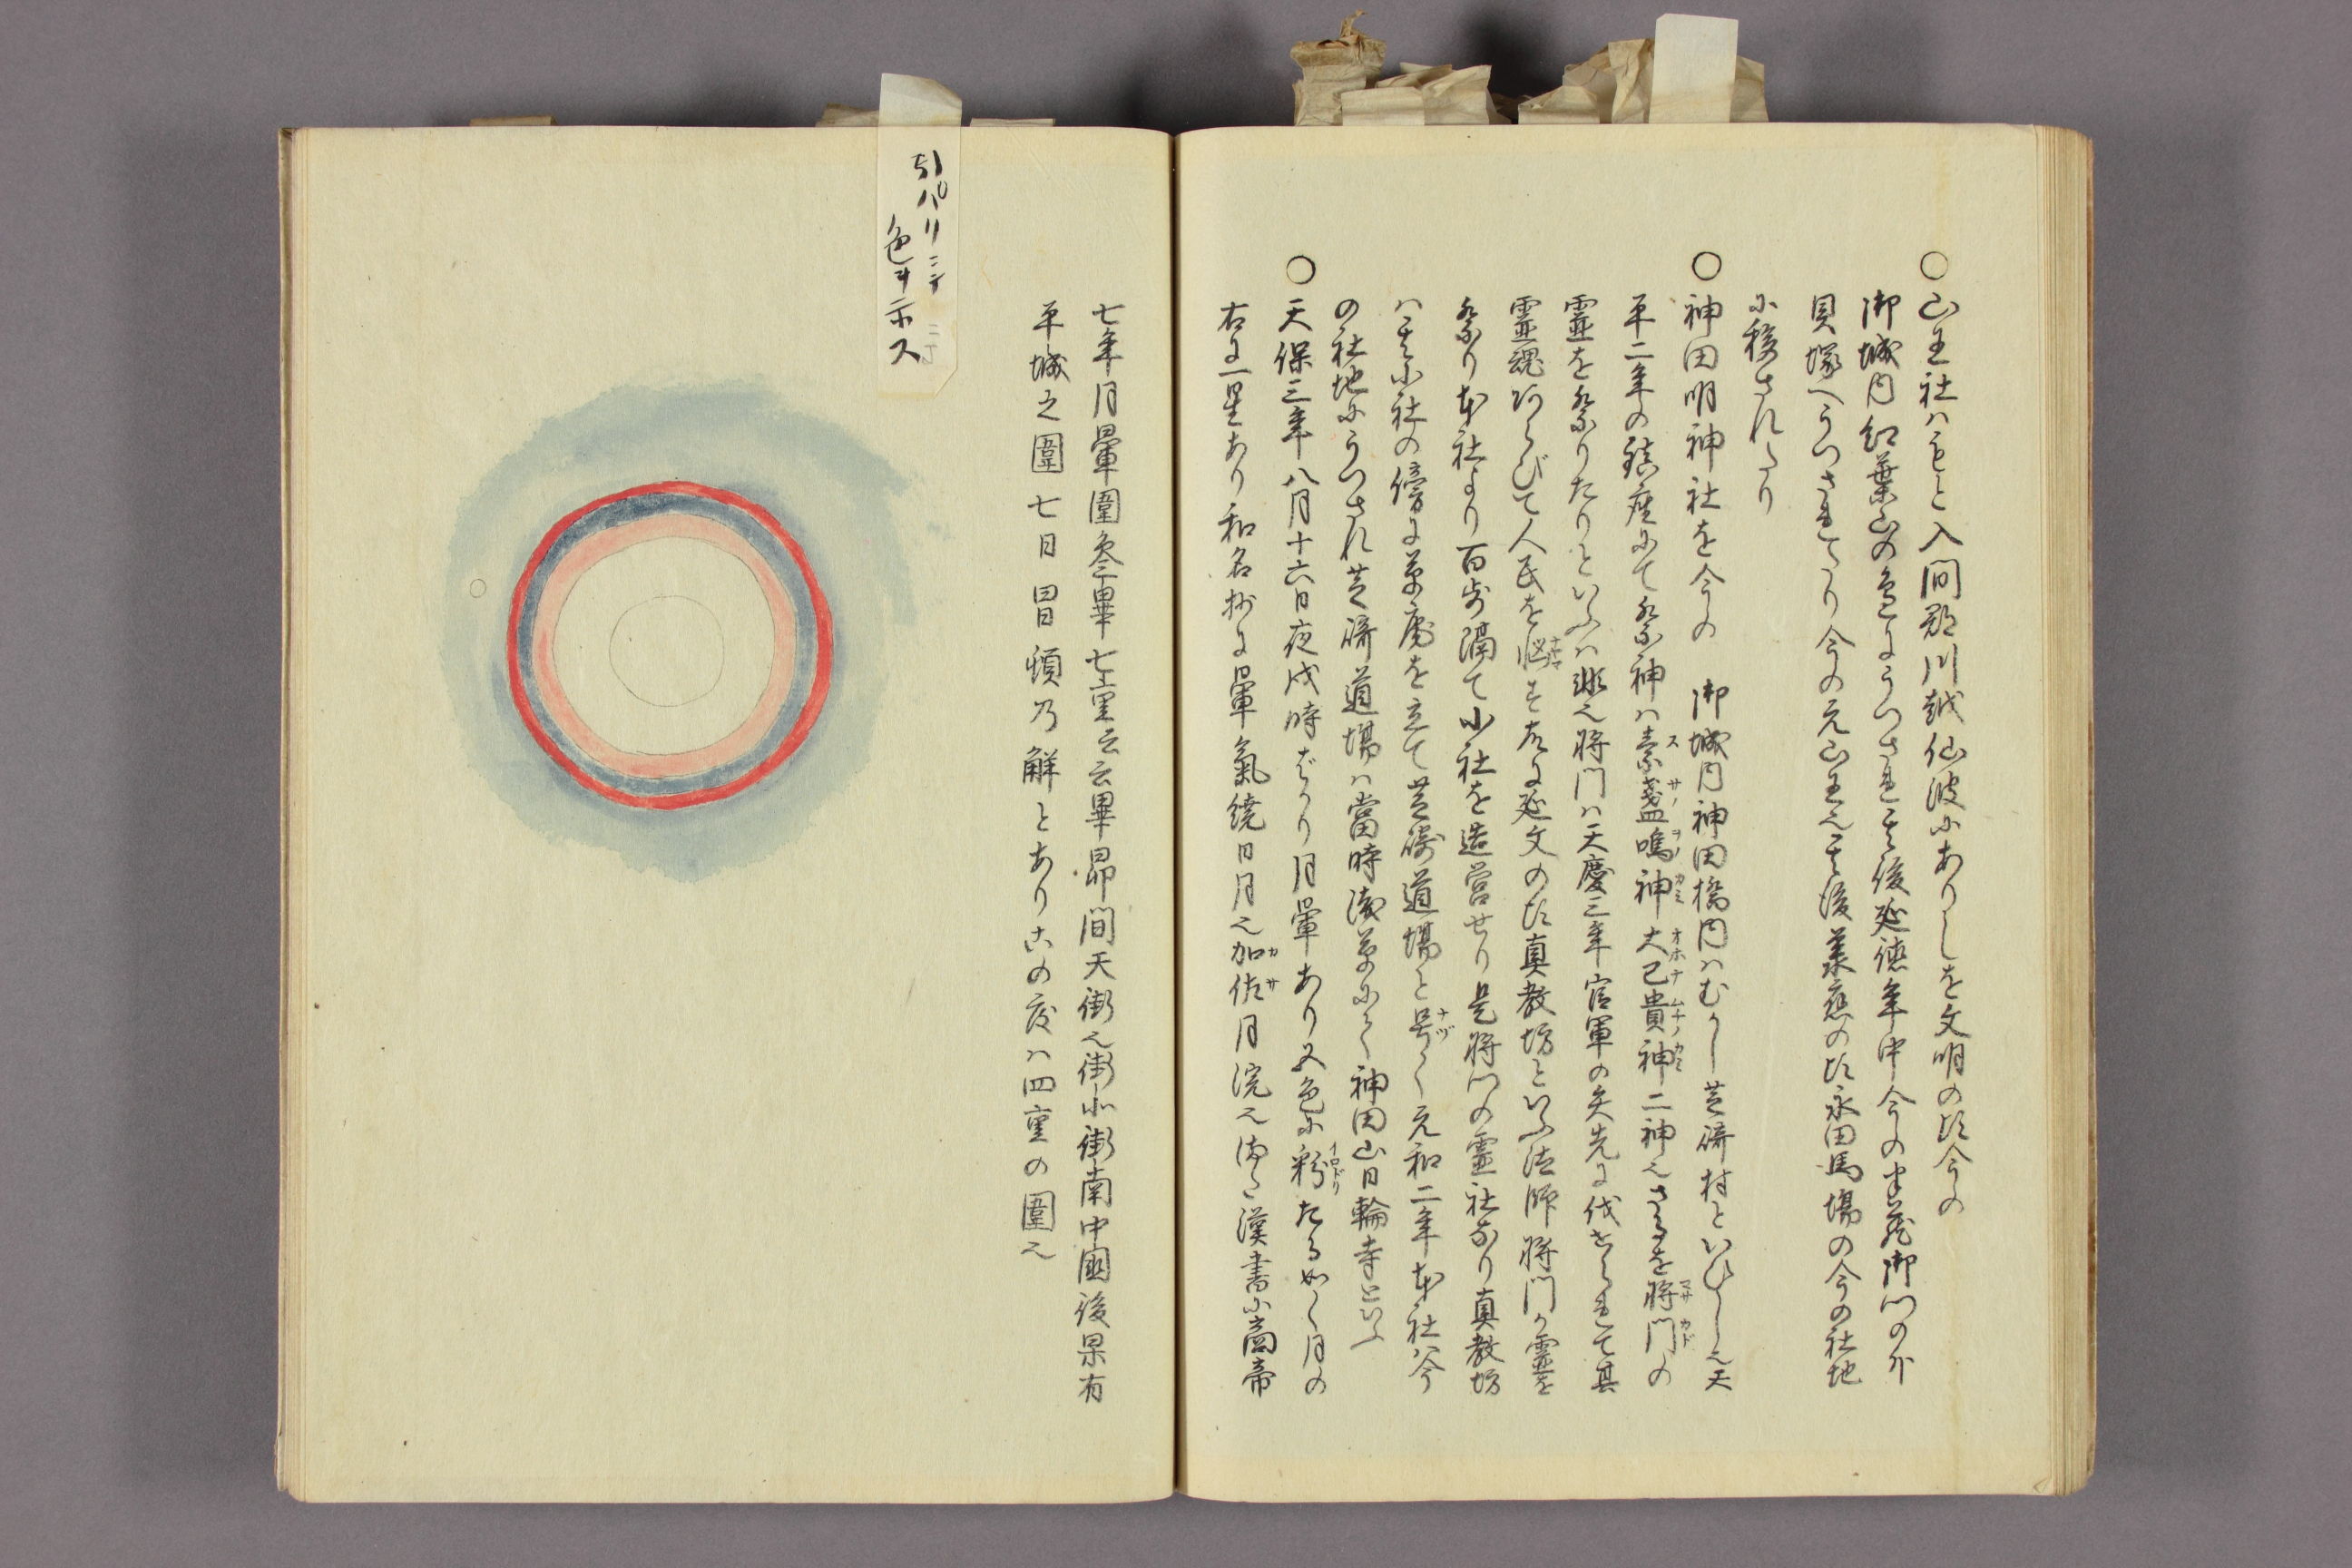 ○山王社ハもと入間郡川越仙波小ありしを文明の頃今の
御城内紅葉山の邊ようつされ其後延徳年中今の半蔵御門の外
貝塚へうつされたり今の元山王之其後義應の頃永田馬場の今の社地
小移されたり
○神田明神社を今の 御城内神田橋内ハむかし芝崎村といひし之天
平二年の鎮座にて祭神ハ素盞嗚神大己貴神二神之さるを将門の
霊を祭りたりといふハ非之将門ハ天慶三年官軍の矢先よ伐せられて其
霊魂あらびて人民を悩す故よ延文の頃真教坊といふ法師将門の霊を
祭り本社より百歩隔て小社を造営せり是将門の霊社なり真教坊
ハ其小社の傍よ草庵を立て芝崎道場と号く元和二年本社ハ今
の社地にうつされ芝崎道場ハ當時浅草にて神田山日輪寺といふ
○天保三年八月十六日夜戌時ばかり月暈あり五色に彩たる如く月の
右よ一星あり和名抄よ暈氣繞日月之加佐月浣之満た漢書小高帝
七年月暈圍參畢七重云云畢昴間天街之街北街南中國後果有
平城之圍七日冒頓乃解とありこの度ハ四重の圍之
引パリニテ
色ヲ示ス